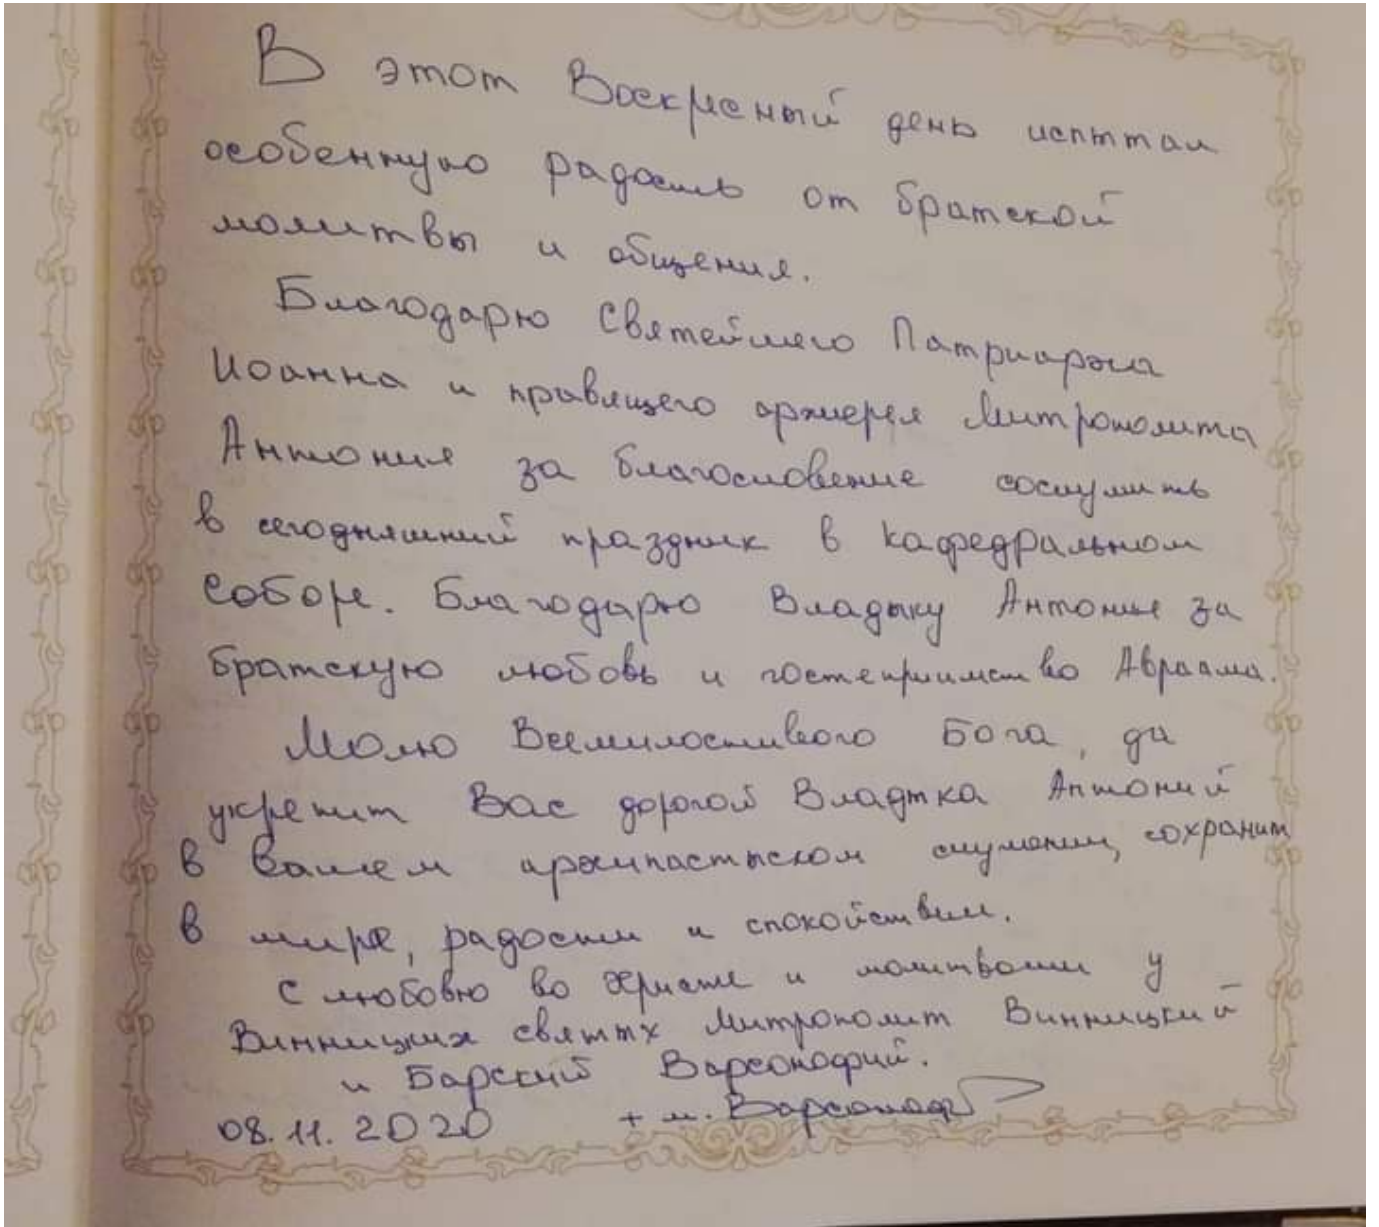 В этот Воскресный день испытал
особенную радость от братской
молитвы и общения.
Благодарю Святейшего Патриарха
Иоанна и правящего архиерея Митрополита
Антония за благословение сослужить
в сегодняшний праздник в кафедральном
соборе. Благодарю Владыку Антония за
братскую любовь и гостеприимство Авраама.
Молю Всемилостивого Бога, да
укрепит Вас дорогой Владыка Антоний
в вашем архипастыском служении, сохранит
в мире, радости и спокойствии.
С любовю во Христе и молитвами у
Винницких святых Митрополит Винницкий
и Барский Варсонофий.
08.11.2020 + м. Варсонофий